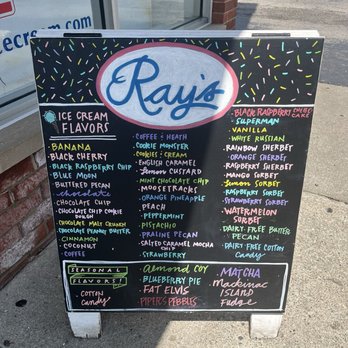 cecream.com
Ray's
ICE CREAM
FLAVORS
BANANA
BLACK CHERRY
BLACK RASPBERRY CHIP
BLUE MOON
BUTTERED PECAN
chocolate
CHOCOLATE CHIP
CHOCOLATE CHIP COOKIE
DOUGH
CHOCOLATE MALT CRUNCH
CHOCOLATE PEANUT BUTTER
CINNAMON
COCONUT
COFFEE
COFFEE & HEATH
COOKIE MONSTER
COOKIES & CREAM
ENGLISH CARAMEL
Lemon CUSTARD
MINT CHOCOLATE CHIP
MOOSETRACKS
ORANGE PINEAPPLE
PEACH
PEPPERMINT
PISTACHIO
PRALINE PECAN
SALTED CARAMEL MOCHA
CHIP
STRAWBERRY
BLACK RASPBERRY
CAKE
SUPERMAN
VANILLA
WHITE RUSSIAN
RAINBOW SHERBET
ORANGE SHERBET
RASPBERRY SHERBET
MANGO SORBET
Lemon SORBET
RASPBERRY SORBET
STRAWBERRY SORBET
WATERMELON
SORBET
DAIRY-FREE BUTTER
PECAN
DAIRY-FREE COTTON
CANDY
SEASONAL
FLAVORS!
COTTON
CANDY
ALMOND COY
BLUEBERRY PIE
FAT ELVIS
PIPER'S PEBBLES
MATCHA
MACKINAC
ISLAND
FUDGE